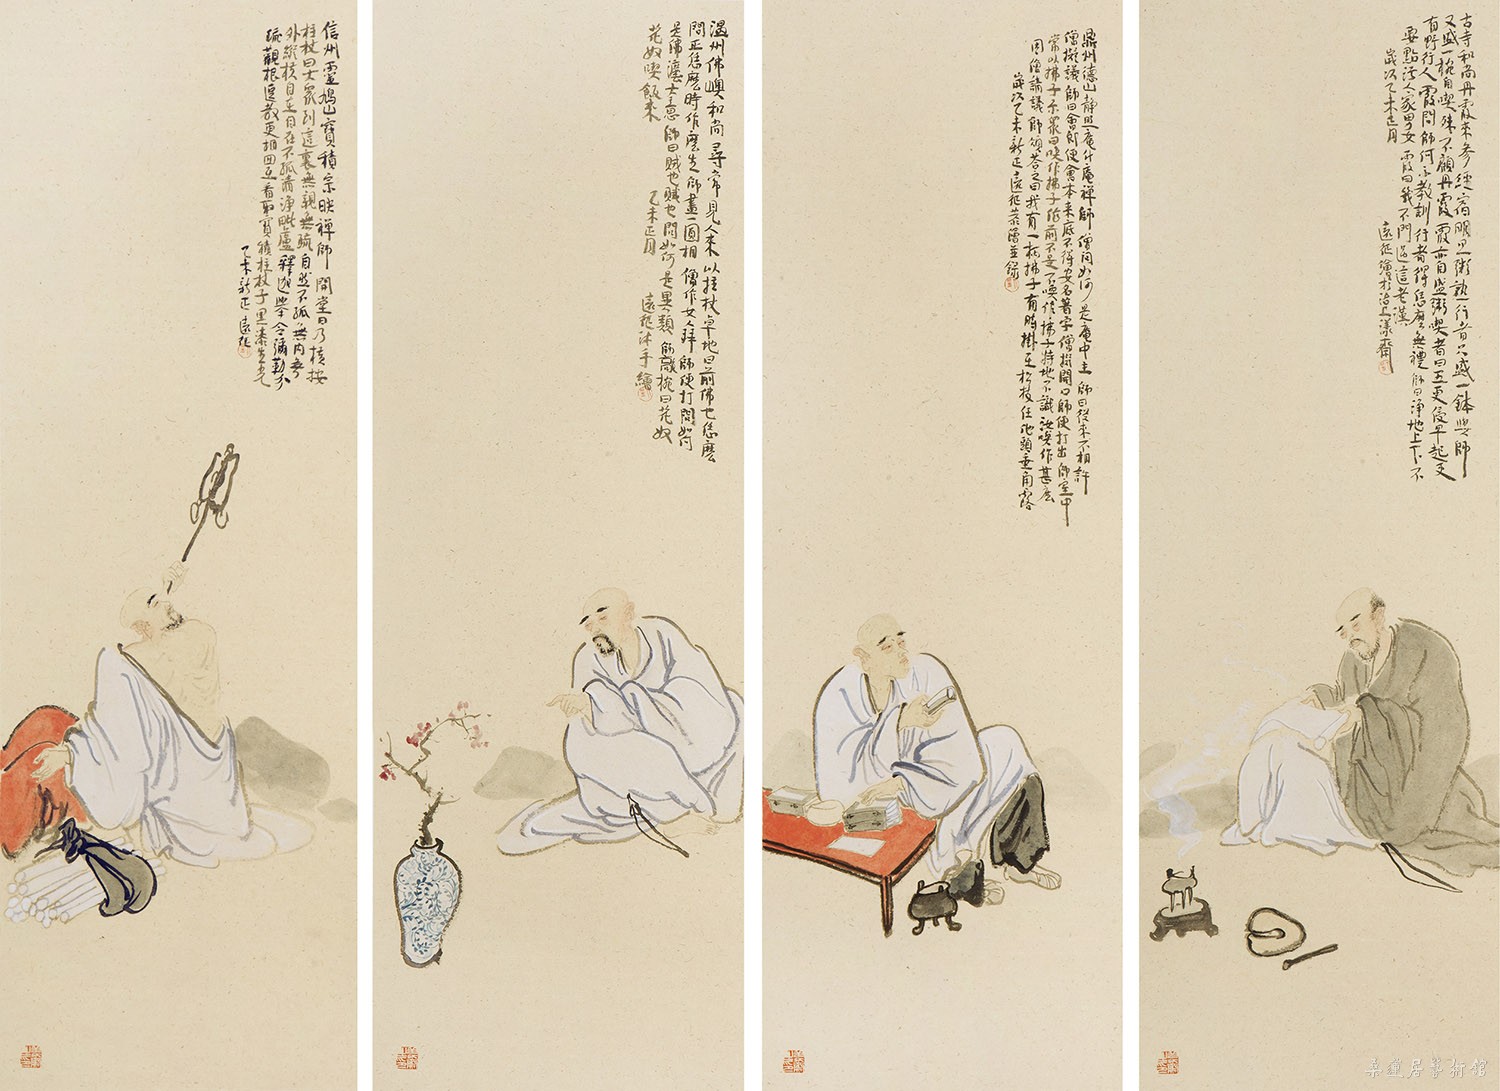 古寺和尚丹霞来參經宿明旦粥熟行者只盛一鉢與師
又盛一椀自喫殊不顧丹霞霞亦自盛粥喫者曰五更侵早起更
有野行人霞問師何不教訓行者得恁麼無禮師曰淨地上下不
要點污人家男女霞曰幾不問過這老漢
歲次乙未正月 遠征繪於滬上漾齋
鼎州德山靜照庵什庵禪師 僧問如何是庵中主 師曰從来不相許
僧擬議師曰會即便會本来底不得安名著字僧擬開口師便打出 師室中
常以拂子示眾曰喚作拂子依前不是不喚作拂子特地不識汝喚作甚麼
因僧請議師頌答之曰我有一柄拂子有時掛在松枝任他頭垂角露
歲次乙未新正遠征恭繪並錄
溫州佛㠗和尚尋常見人来以拄杖卓地曰前佛也恁麼
問正恁麼時作麼生師畫一圓相 僧作女人拜師便打問如何
是佛法大意 師曰賊也賊也問如何是異類 師敲椀曰花奴
花奴喫飯来 乙未正月 遠征沐手繪
信州靈鳩山寶積宗映禪師 開堂曰乃橫按
拄杖曰大眾到這裏無親無疏自然不孤無内無
外縱橫自在自在不孤清淨毗盧釋迦举令彌勒分
疏觀根逗教更相回互看取寶積拄杖子黑漆生光
乙未新正遠征